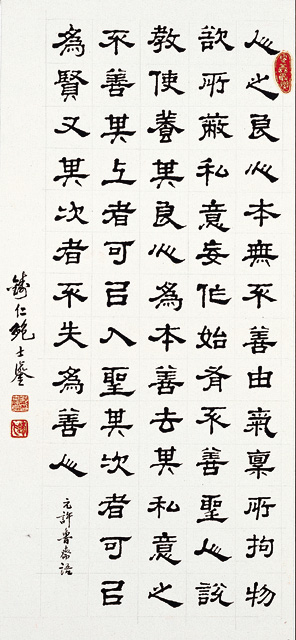 人之良心本無不善由氣稟所拘物
欲所蔽私意妄作始有不善聖人說
教使養其良心為本善去其私意之
不善其上者可㠯入聖其次者可㠯
為賢又其次者不失為善人
元許魯齋語
仁鮑士